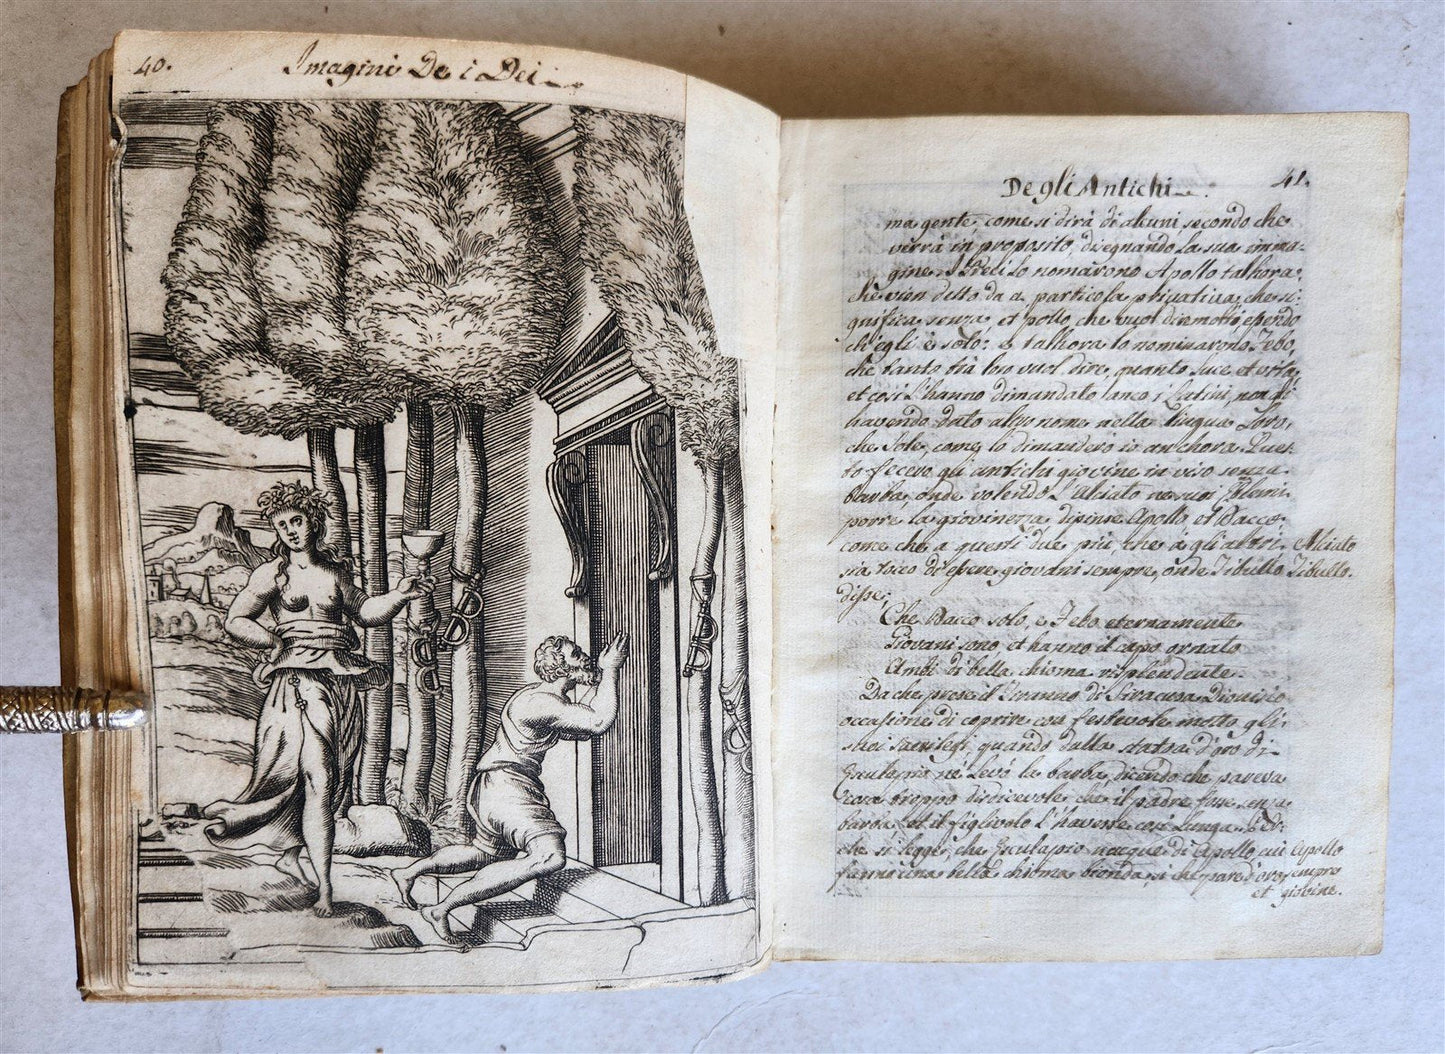 40.
Imagini De i Dei
De gli Antichi
41.
ma gente, come si dirà di alcuni secondo che
verrà in proposito, disegnando la sua imma-
gine. I Greci lo nomarono Apollo talhora,
che vien detto da a particola privativa, che si-
gnifica senza et pollo che vuol dir molti essendo
ch'egli è solo: e talhora lo nominarono Febo,
che tanto viene vuol dire, quanto luce et vita,
et così l'hanno dimandato anco i Latini, non gli
havendo dato altro nome nella lingua loro,
che Sole, come lo dimanderò io anchora. Ques-
to fecero gli antichi giovine in viso senza
barba, onde volendo l'Alciato ne suoi Emblemi
porre la giovinezza dipinse Apollo et Bacco
come che a questi due più, che à gli altri
sia toco di essere giovani sempre, onde Tibullo
disse;
Alciato
Tibullo.
Che Bacco solo, e Febo eternamente
Giovani sono et hanno il capo ornato
Ambi di bella chioma risplendente.
Da che prese il Tiranno di Siracusa Dionisio
occasione di coprire con festevole motto gli
suoi sacrilegi, quando dalla statoa d'oro di
Esculapio ne levò la barba, dicendo che pareva
cosa troppo disdicevole che il padre fosse senza
barba et il figlivolo l'havesse così lunga.
che si legge, che Esculapio nacque di Apollo, cui
fanno una bella chioma bionda, che pare d'oro,
Apollo
sempre
et giovine.